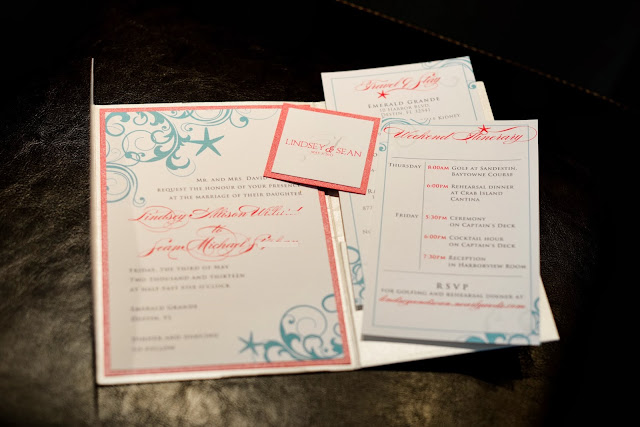 Mr. and Mrs. David
request the honour of your presence
at the marriage of their daughter
Lindsey Allison
to
Sean Michael
Friday, the third of May
two thousand and thirteen
at half past five o'clock
Emerald Grande
Destin, FL
Dinner and dancing
to follow
LINDSEY & SEAN
Travel & Stay
Emerald Grande
10 Harbor Blvd
Destin, FL 32541
Weekend Itinerary
Thursday
8:00AM Golf at Sandestin,
Baytowne Course
6:00PM Rehearsal dinner
at Crab Island
Cantina
Friday
5:30PM Ceremony
on Captain's Deck
6:00PM Cocktail hour
on Captain's Deck
7:30PM Reception
in Harborview Room
RSVP
for golfing and rehearsal dinner at